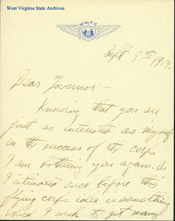 West Virginia State Archives
Sept 9th
1917.
Dear Governor:-
Knowing that you are
just as interested as myself
in the success of the corps
I am bothering you again. As
I intimated once before this
flying corps idea is something
which I wish to get many